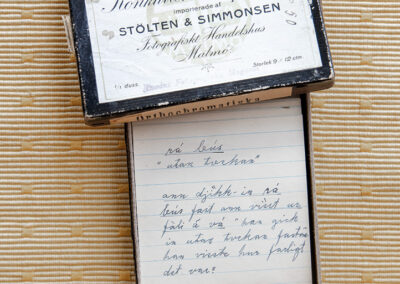 importerade af
STÖLTEN & SIMMONSEN
Fotografiskt Handelshus
Malmö
Storlek 9 / 12 cm
Orthochromatiska
rå bús
"utan tvekan"
ann djikk in rå
bús fast ann visst
färli å va "han gick
in utan tvekan fastän
han visste hur farligt
det var"